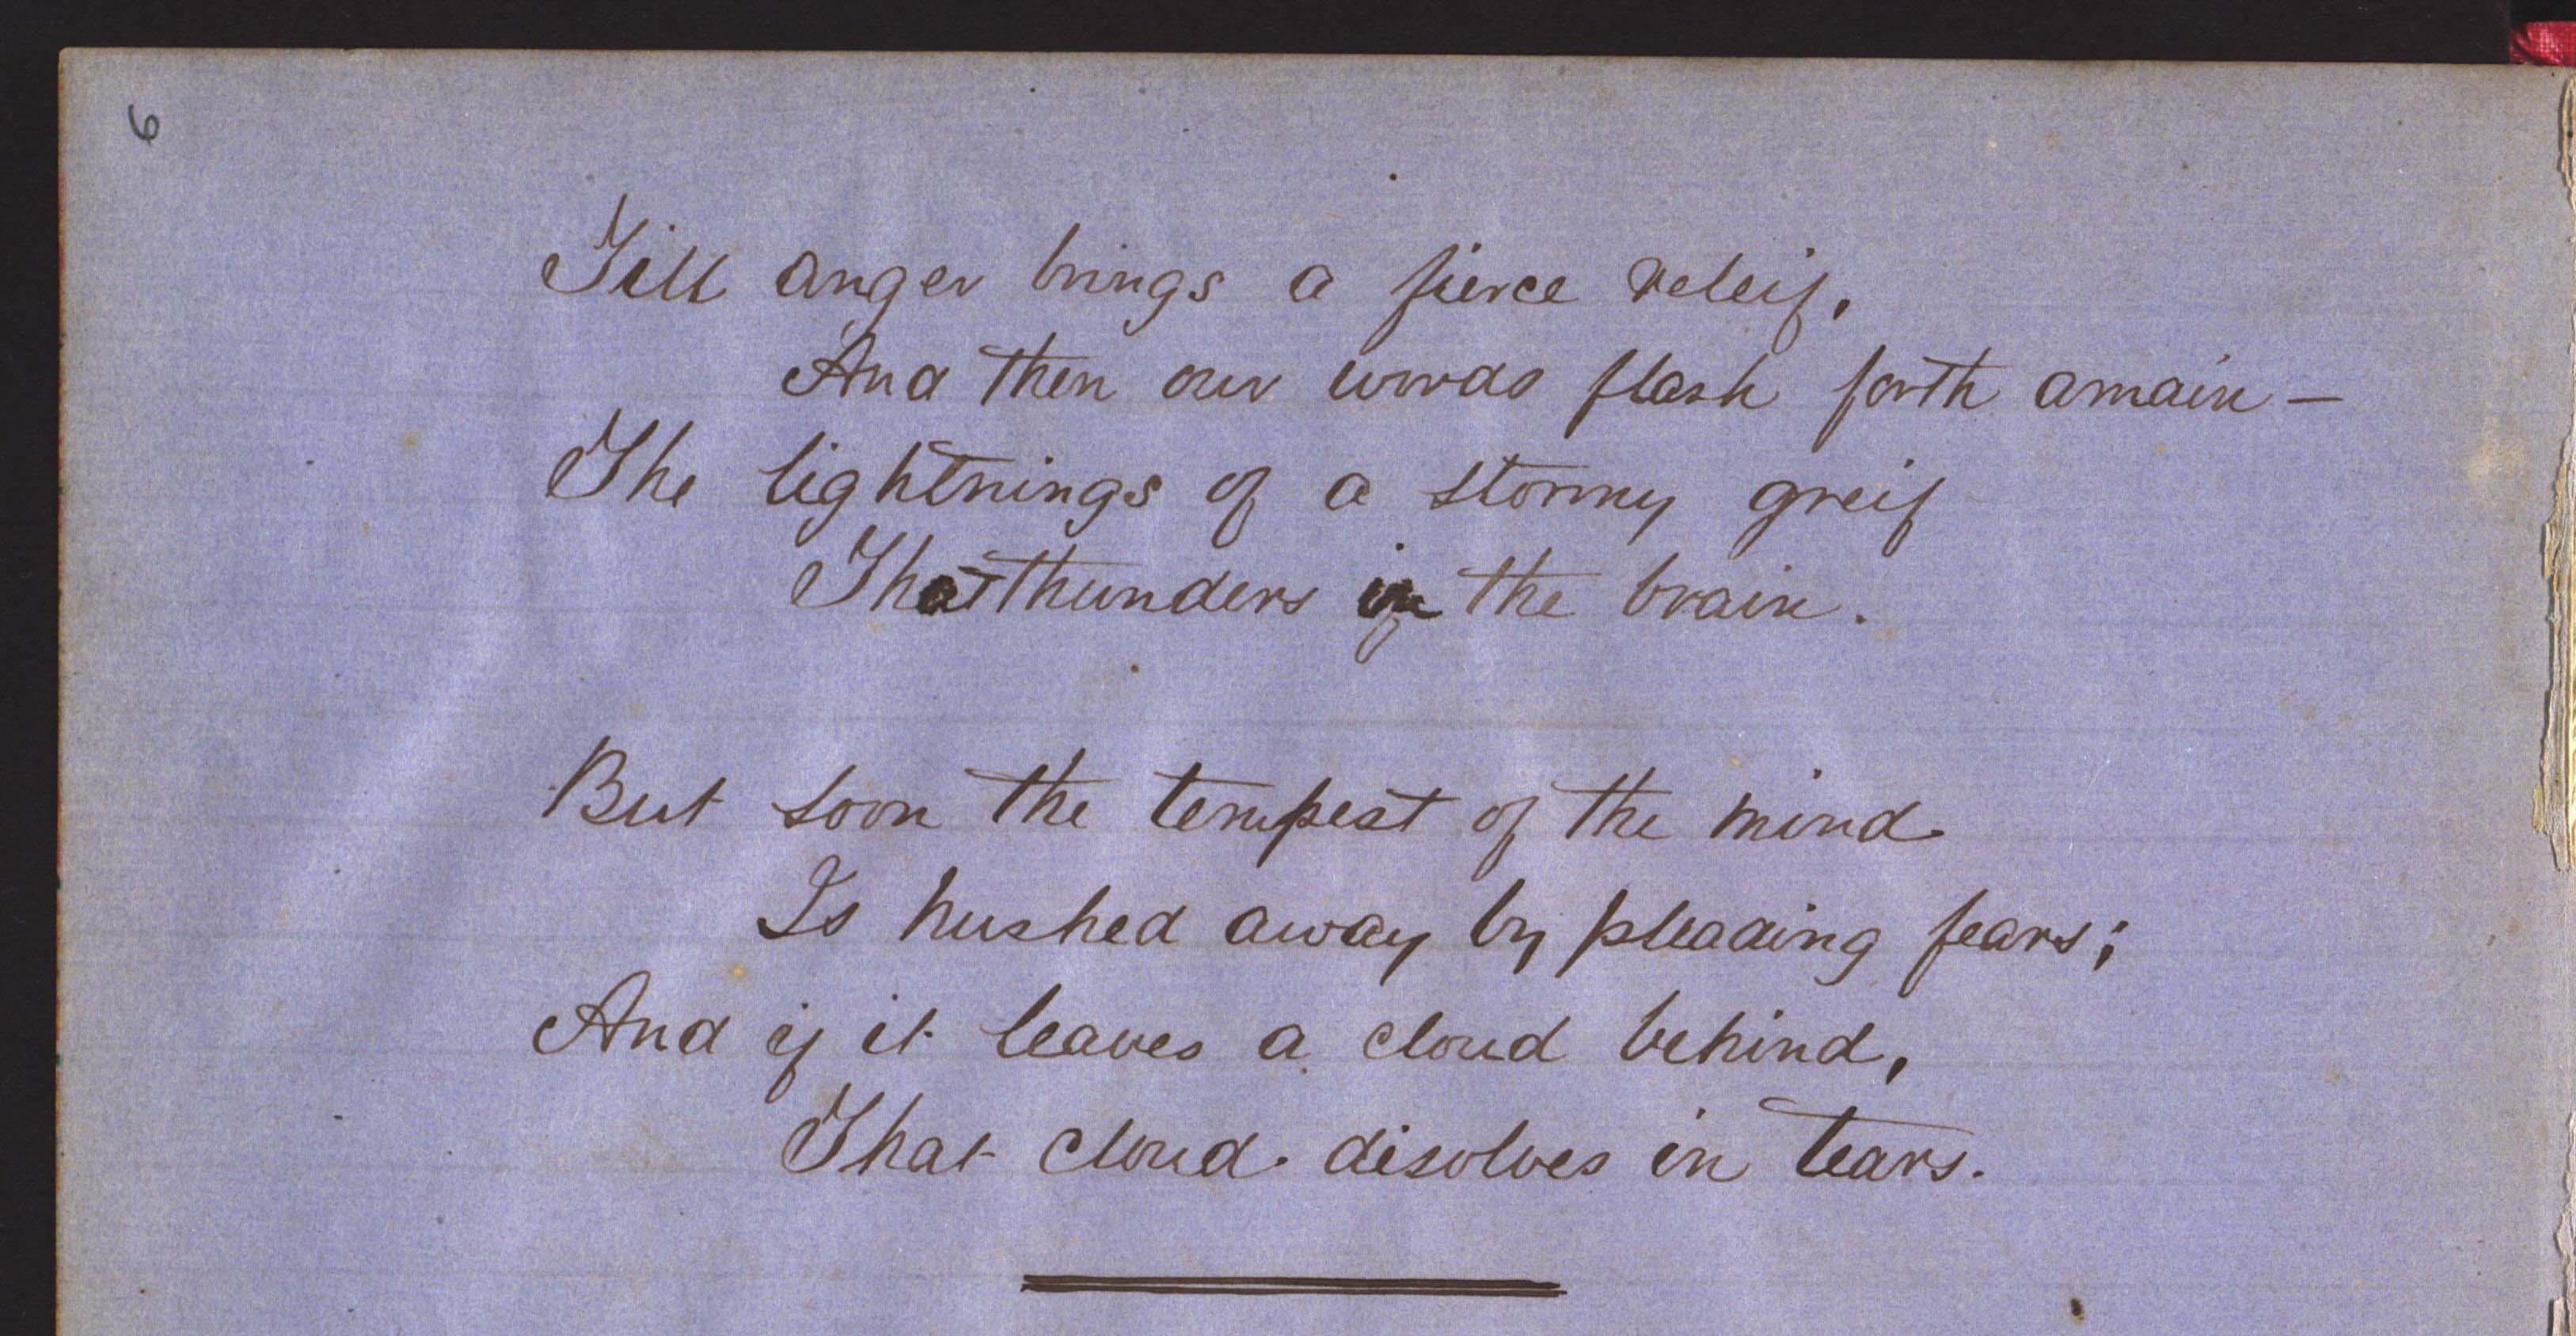 6
Till anger brings a fierce releif,
And then our words flash forth amain —
The lightnings of a stormy greif
That thunders in the brain.
But soon the tempest of the mind
Is hushed away by pleading fears;
And if it leaves a cloud behind,
That cloud disolves in tears.